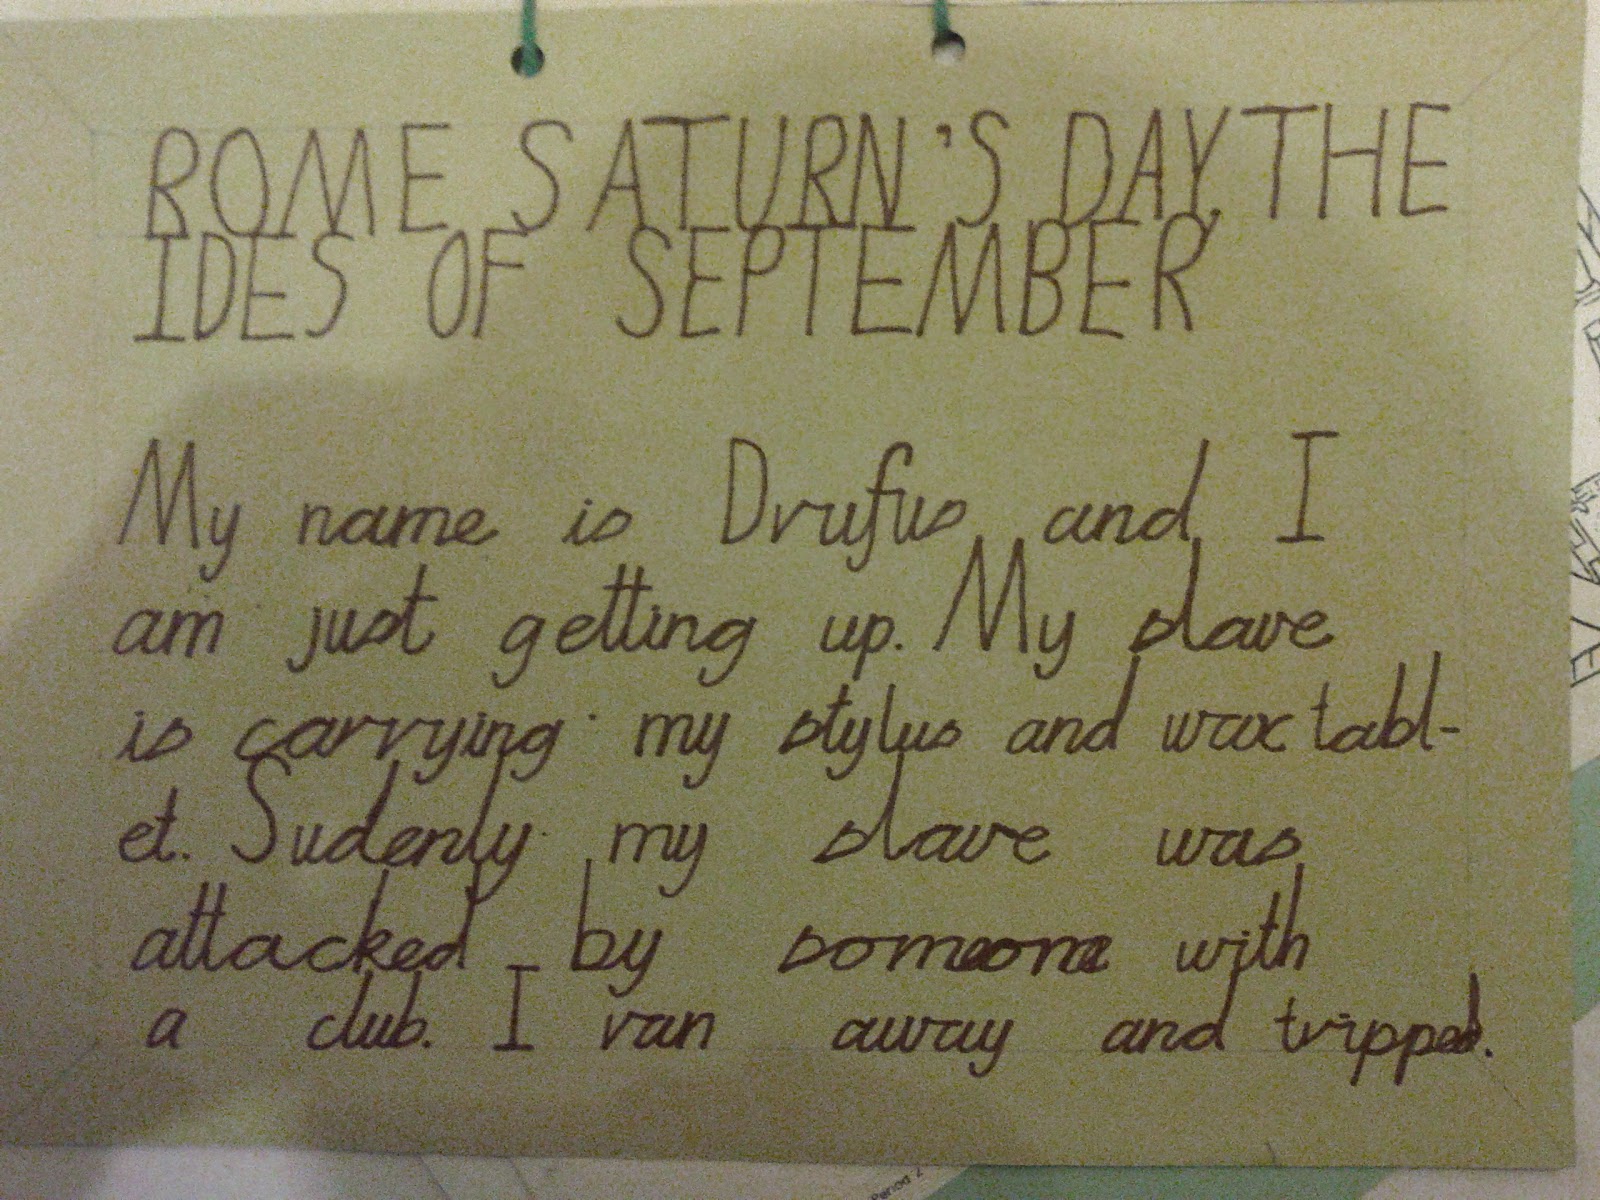 ROME SATURN'S DAY, THE
IDES OF SEPTEMBER
My name is Drufus and I
am just getting up. My slave
is carrying my stylus and wax tabl-
et. Sudenly my slave was
attacked by someone with
a club. I ran away and tripped.
Period 2